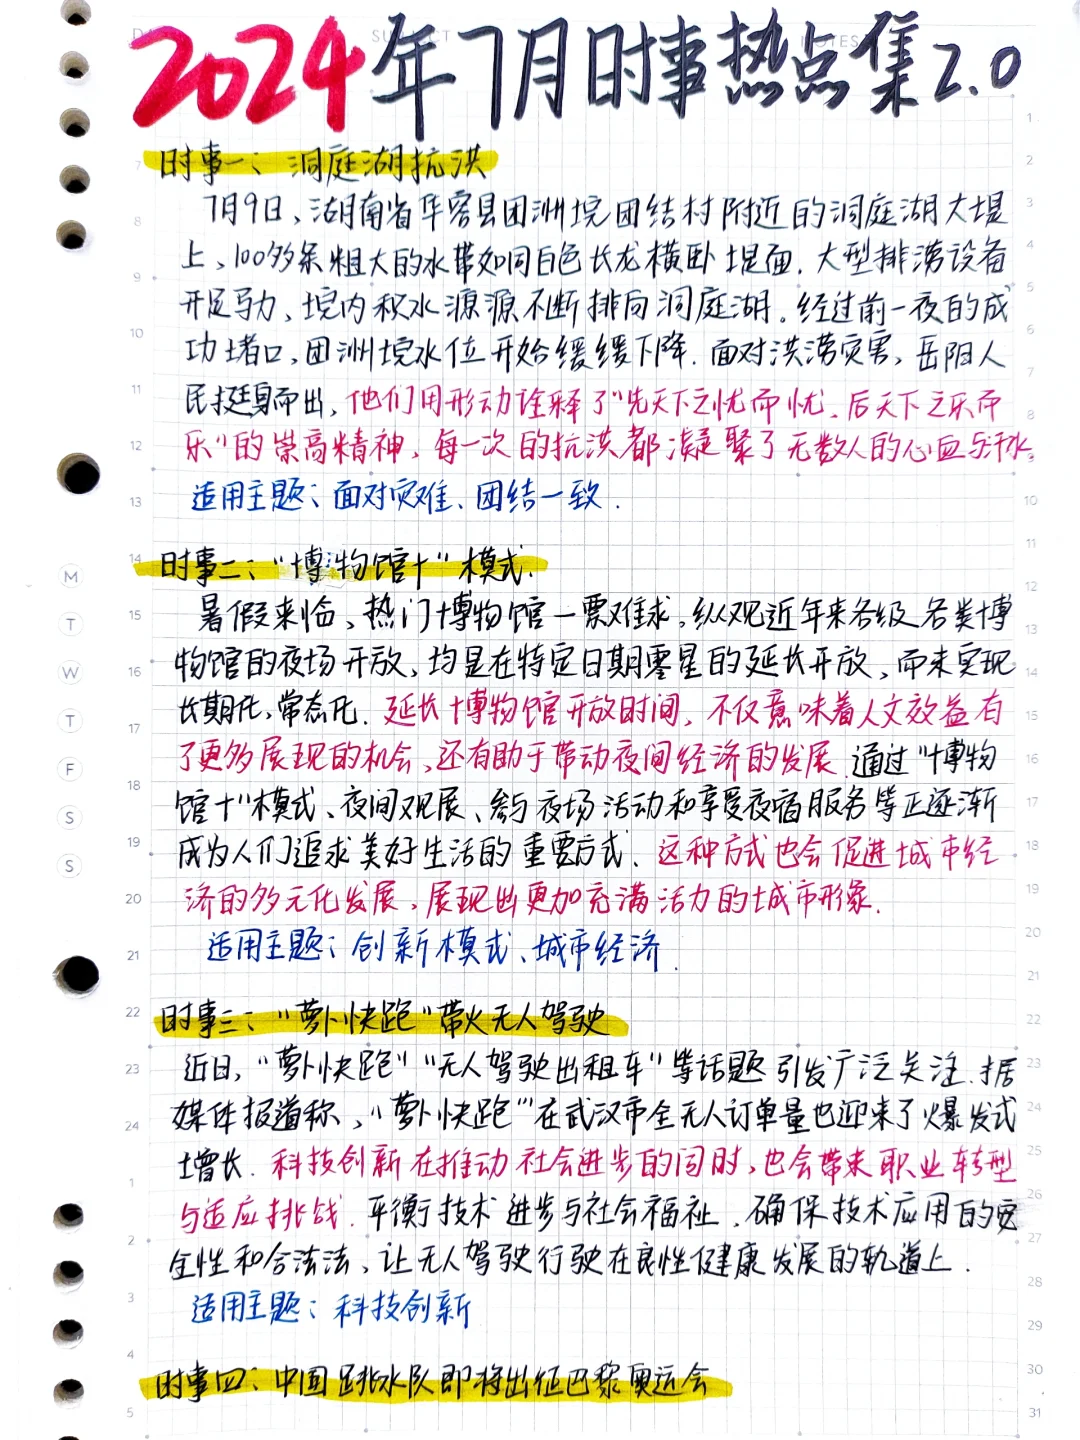 2024年7月时事热点集2.0
时事一：洞庭湖抗洪
7月9日，湖南省华容县团洲垸团结村附近的洞庭湖大堤
上，100多条粗大的水带如同白色长龙横卧堤面。大型排涝设备
开足马力，垸内积水源源不断排向洞庭湖。经过前一夜的成
功堵口，团洲垸水位开始缓缓下降。面对洪涝灾害，岳阳人
民挺身而出，他们用形动诠释了“先天下之忧而忧，后天下之乐而
乐”的崇高精神，每一次的抗洪都凝聚了无数人的心血与汗水。
适用主题：面对灾难、团结一致.
时事二：“博物馆+”模式.
暑假来临，热门博物馆一票难求，纵观近年来各级各类博
物馆的夜场开放，均是在特定日期零星的延长开放，而未实现
长期化，常态化. 延长博物馆开放时间，不仅意味着人文效益有
了更多展现的机会，还有助于带动夜间经济的发展. 通过“博物
馆+”模式、夜间观展、参与夜场活动和享受夜宿服务等正逐渐
成为人们追求美好生活的重要方式. 这种方式也会促进城市经
济的多元化发展，展现出更加充满活力的城市形象.
适用主题：创新模式、城市经济.
时事三：“萝卜快跑”带火无人驾驶
近日，“萝卜快跑”“无人驾驶出租车”等话题引发广泛关注. 据
媒体报道称，“萝卜快跑”在武汉市全无人订单量也迎来了爆发式
增长. 科技创新在推动社会进步的同时，也会带来职业转型
与适应挑战. 平衡技术进步与社会福祉，确保技术应用的安
全性和合法法，让无人驾驶行驶在良性健康发展的轨道上.
适用主题：科技创新
时事四：中国跳水队即将出征巴黎奥运会